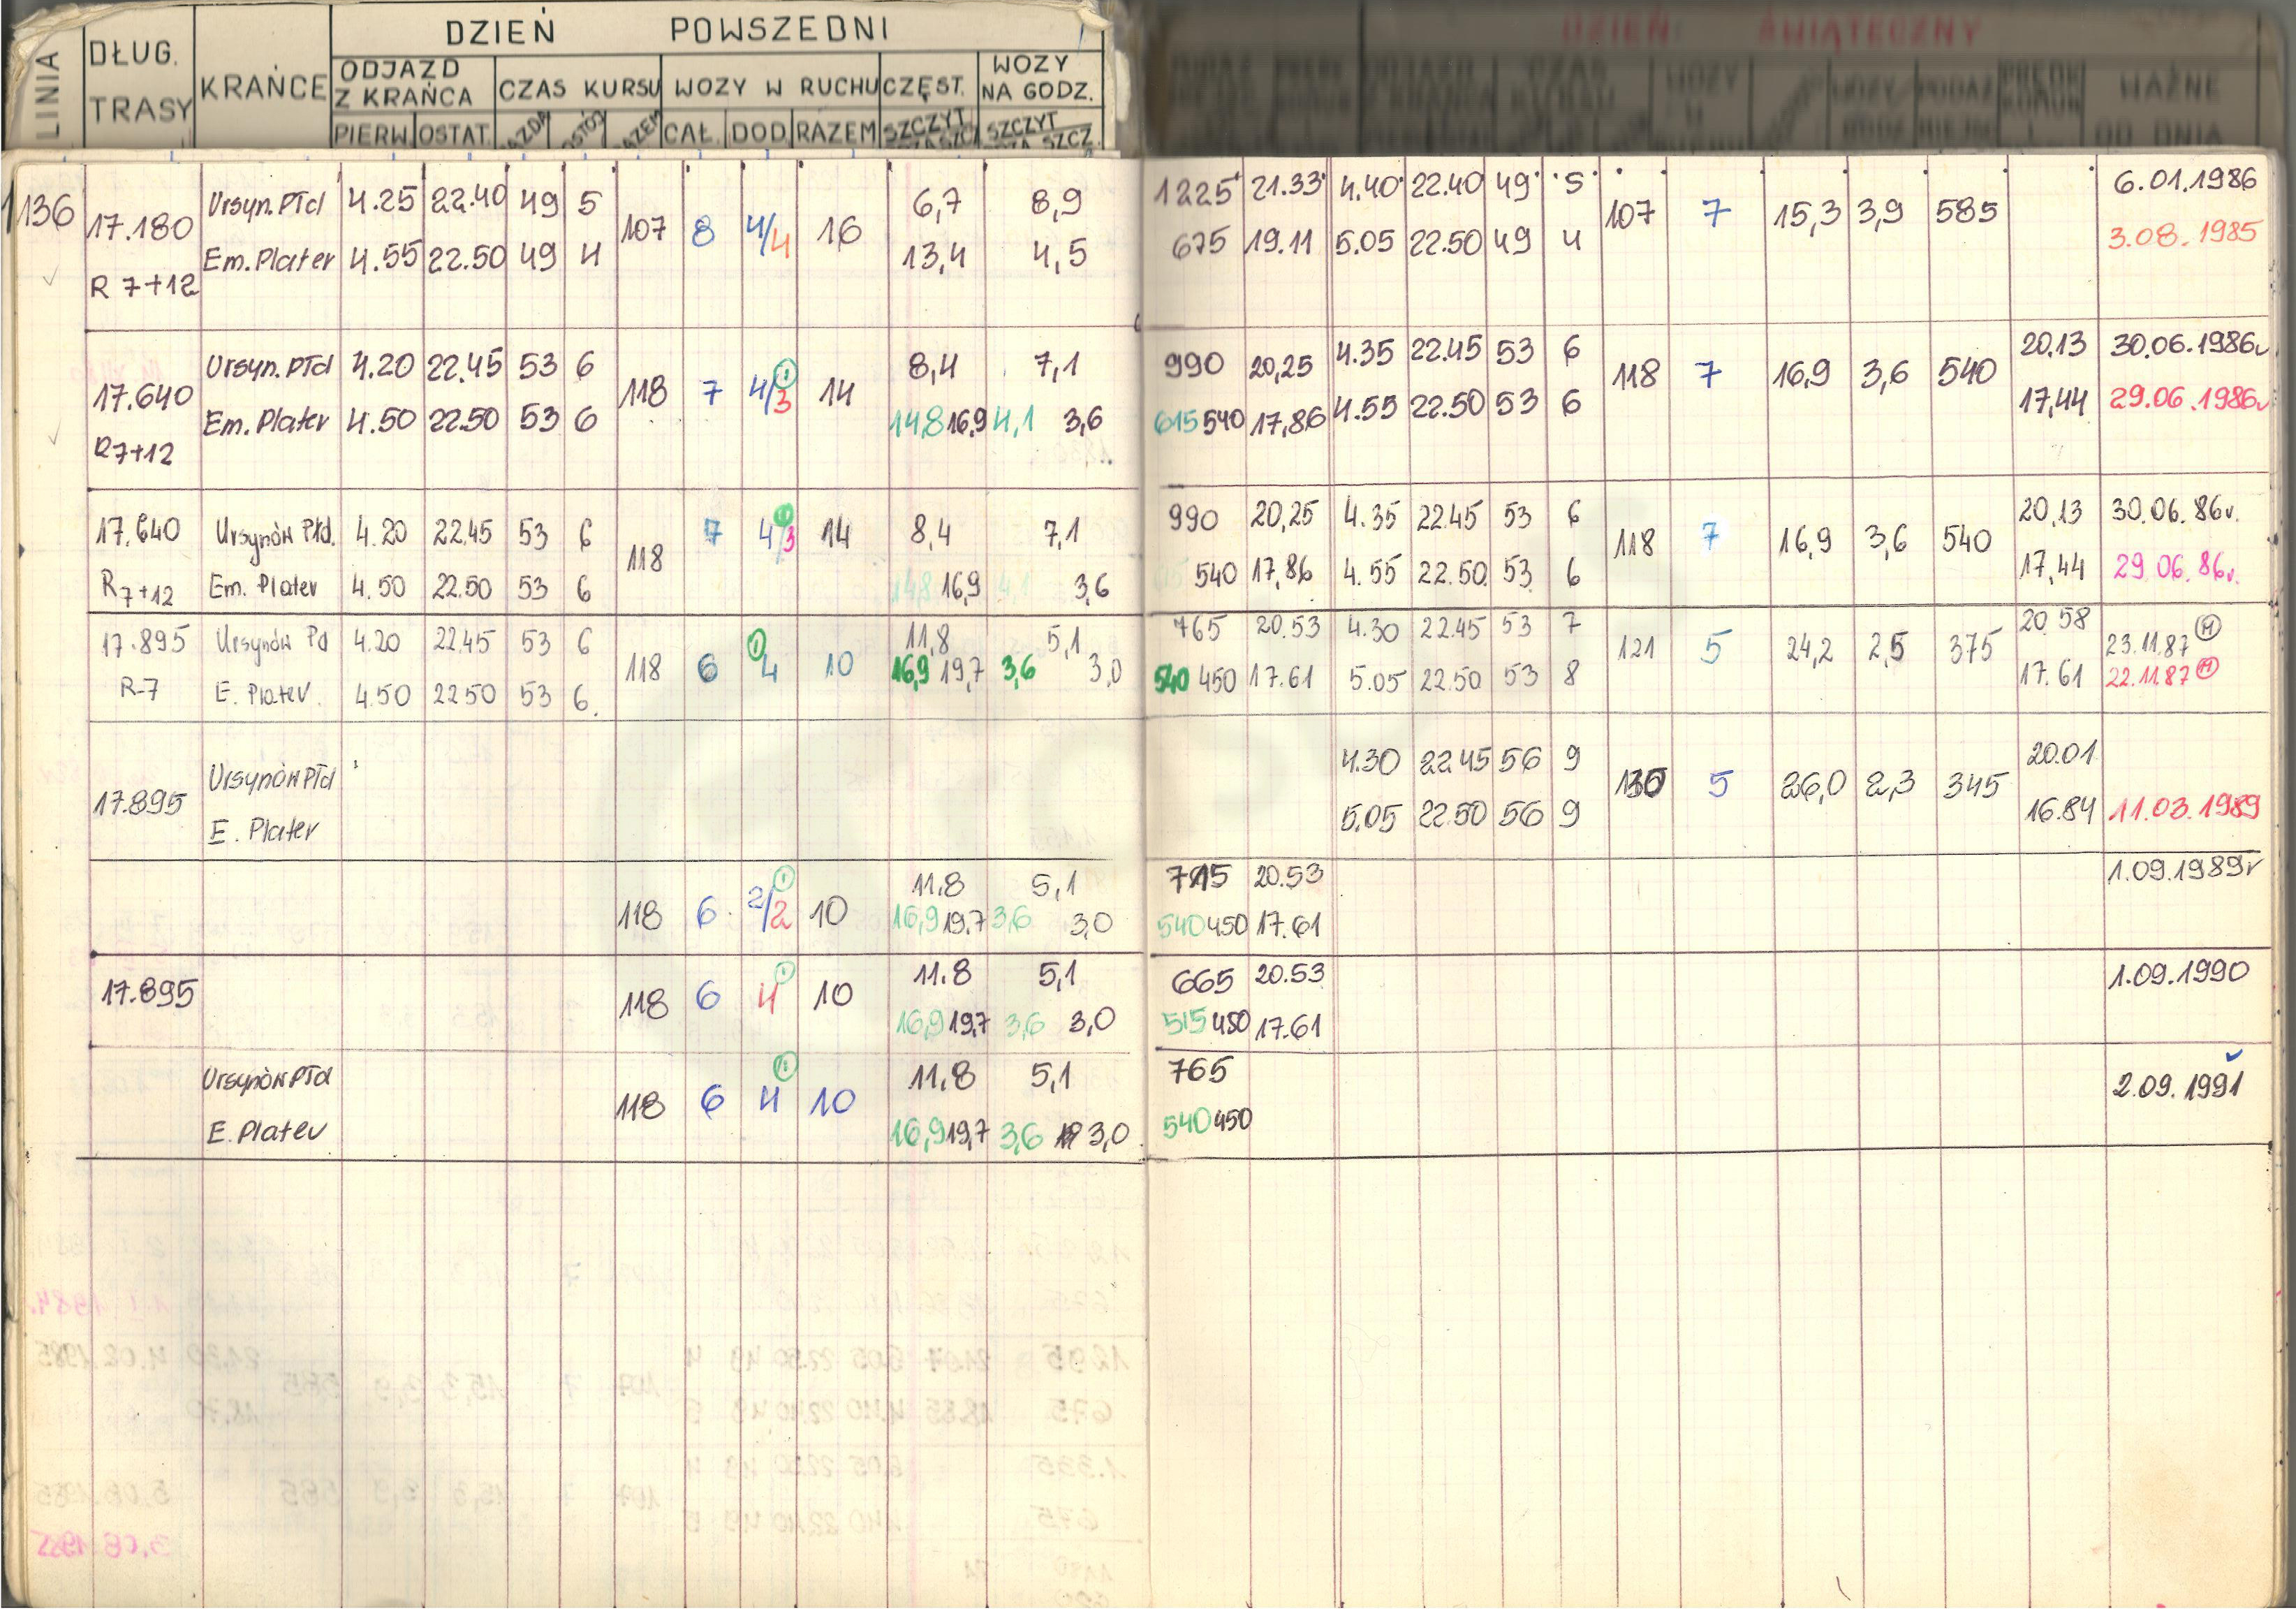 DZIEŃ POWSZEDNI DZIEŃ ŚWIĄTECZNY
LINIA DŁUG. TRASY KRAŃCE ODJAZD Z KRAŃCA CZAS KURSU WOZY W RUCHU CZĘST. WOZY NA GODZ. WAŻNE OD DNIA
PIERW OSTAT. CAŁ. DOD. RAZEM SZCZYT SZCZYT
136 17.180 Ursyn.Płd 4.25 22.40 49 5 107 8 4/4 16 6,7 8,9 1225 21.33 4.40 22.40 49 5 107 7 15,3 3,9 585 6.01.1986
Em.Plater 4.55 22.50 49 4 13,4 4,5 675 19.11 5.05 22.50 49 4 3.08.1985
R 7+12
17.640 Ursyn.Płd 4.20 22.45 53 6 118 7 4/3 1 14 8,4 7,1 990 20,25 4.35 22.45 53 6 118 7 16,9 3,6 540 20,13 30.06.1986r
Em.Plater 4.50 22.50 53 6 14,8 16,9 4,1 3,6 615 540 17,86 4.55 22.50 53 6 17,44 29.06.1986r
R7+12
17.640 Ursynów Płd. 4.20 22.45 53 6 118 7 4/3 14 8,4 7,1 990 20,25 4.35 22.45 53 6 118 7 16,9 3,6 540 20,13 30.06.86r.
R7+12 Em. Plater 4.50 22.50 53 6 14,8 16,9 4,1 3,6 540 17,86 4.55 22.50 53 6 17,44 29.06.86r.
17.895 Ursynów Pd 4.20 22.45 53 6 118 6 1 4 10 11,8 5,1 765 20.53 4.30 22.45 53 7 121 5 24,2 2,5 375 20.58 23.11.87
R-7 E. Plater. 4.50 22.50 53 6. 16,9 19,7 3,6 3,0 540 450 17.61 5.05 22.50 53 8 17.61 22.11.87
17.895 Ursynów Płd 4.30 22.45 56 9 130 5 26,0 2,3 345 20.01
E. Plater 5.05 22.50 56 9 16.84 11.03.1989
118 6 2/2 1 10 11.8 5,1 715 20.53 1.09.1989r
16,9 19.7 3,6 3,0 540 450 17.61
17.895 118 6 4 1 10 11.8 5,1 665 20.53 1.09.1990
16,9 19,7 3,6 3,0 515 450 17.61
Ursynów Płd 118 6 4 1 10 11,8 5,1 765 2.09.1991
E. Plater 16,9 19,7 3,6 3,0 540 450